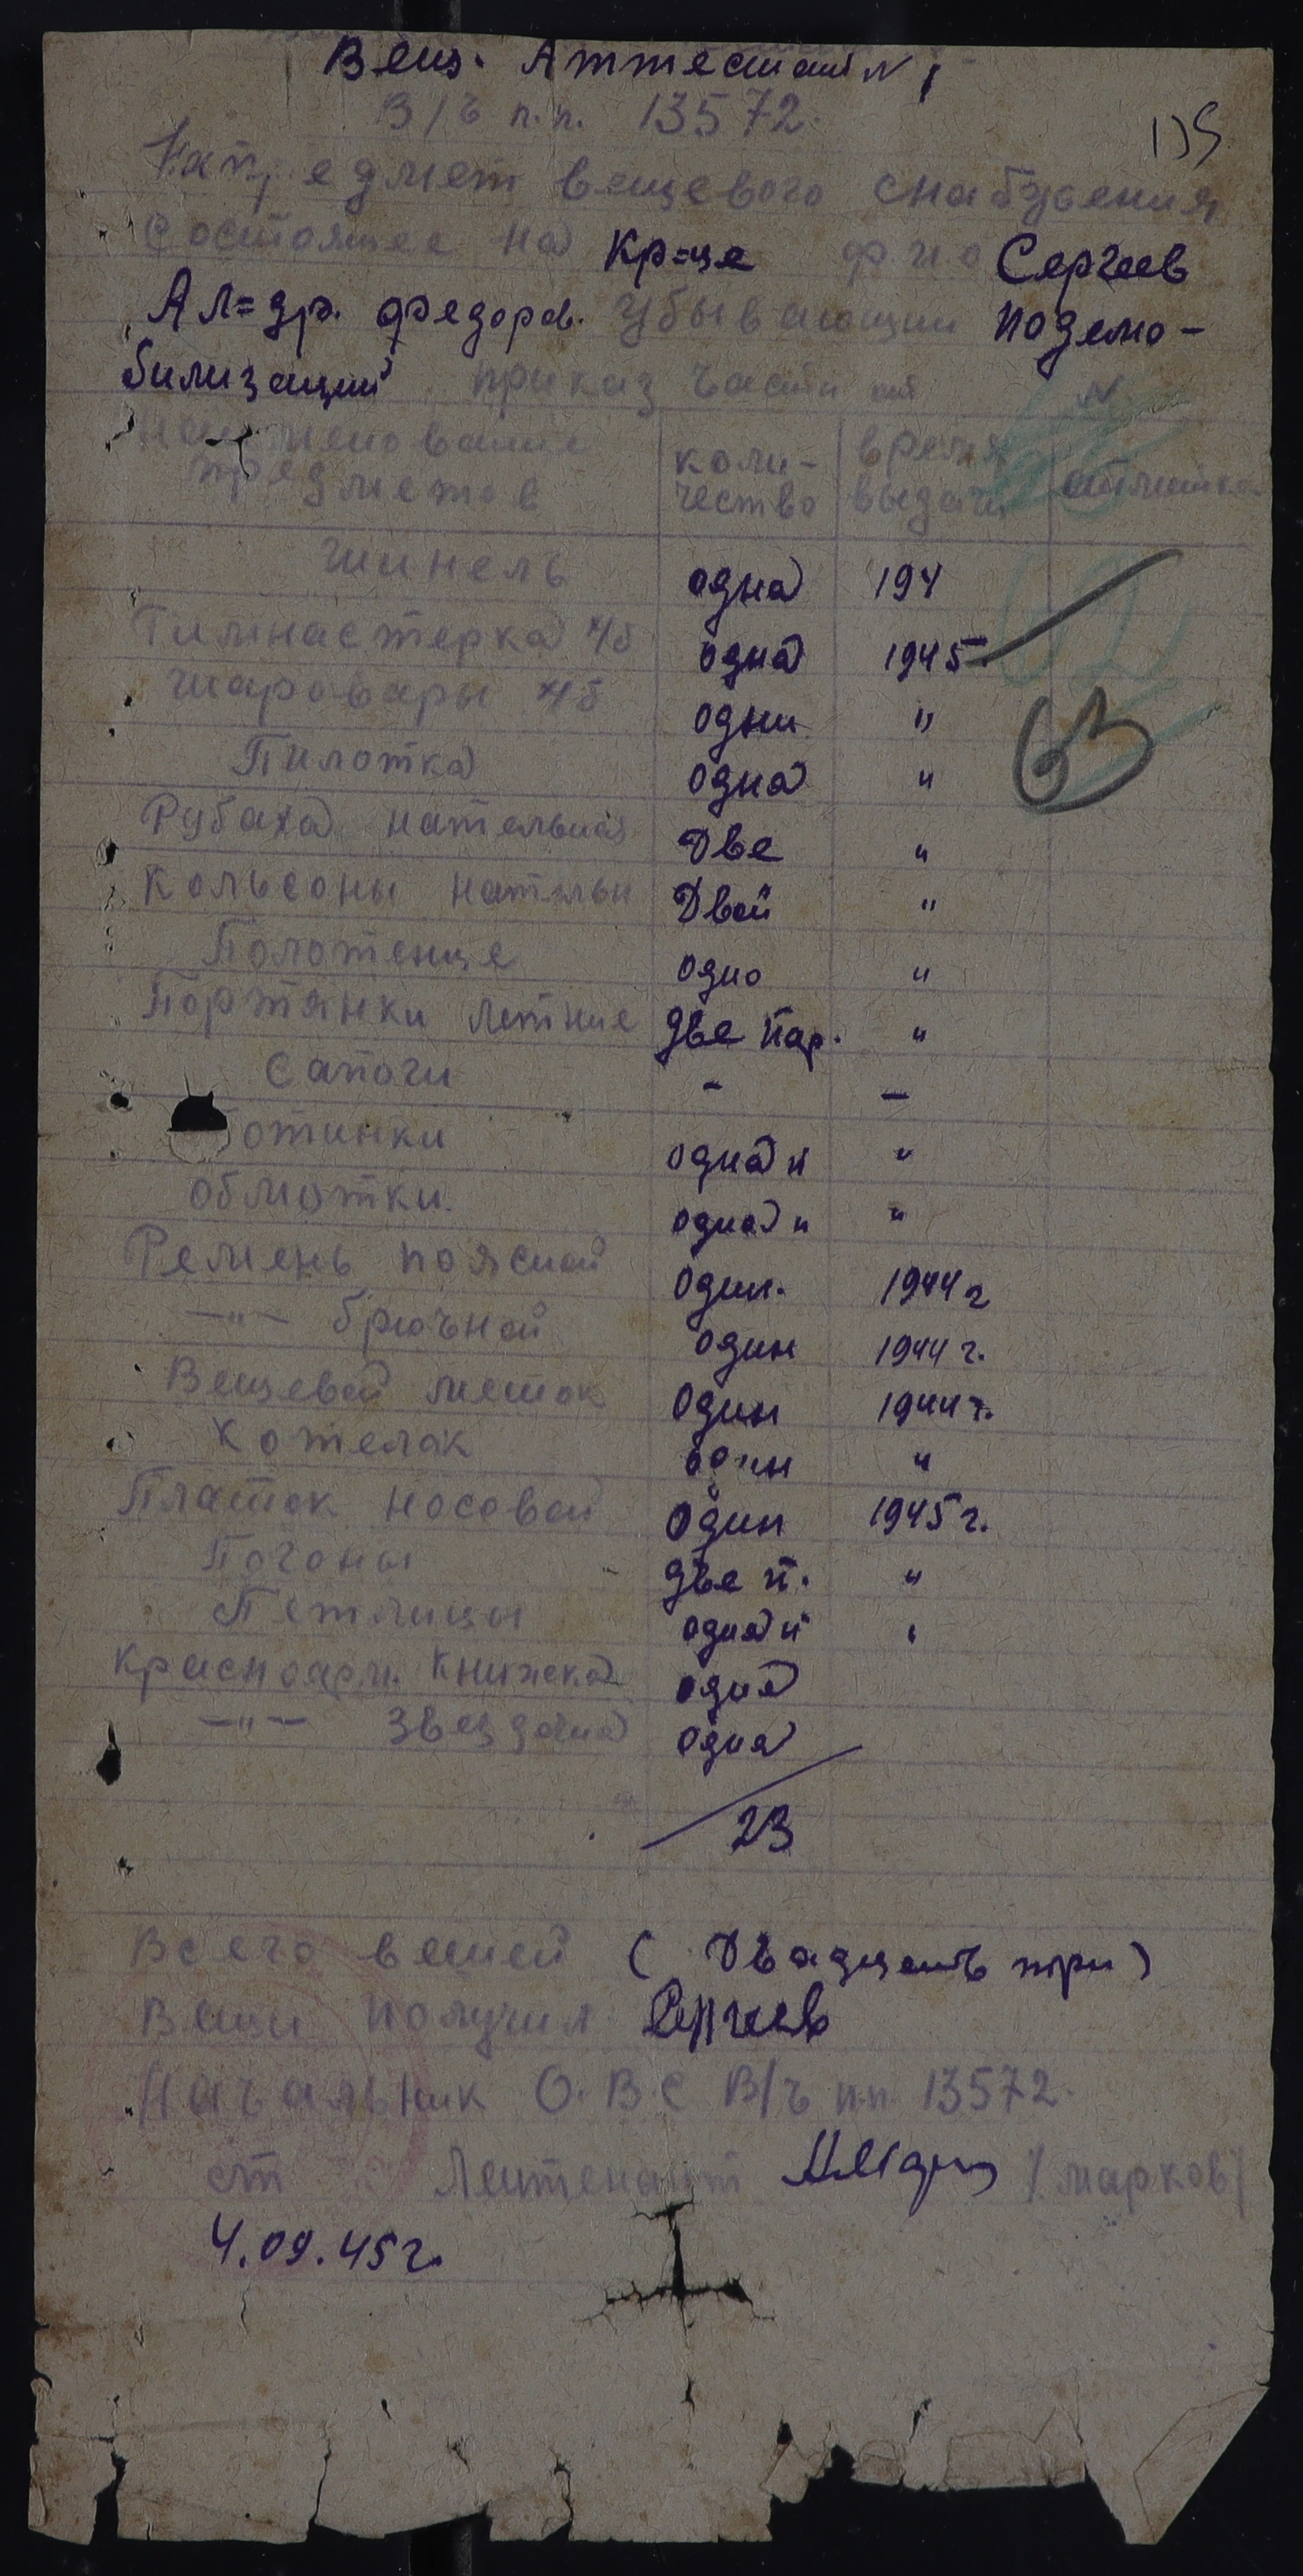 Вещ. Аттестат N 1
В/ч п.п. 13572.
135
На предмет вещевого снабжения
Состоящее на Кр=це ф.и.о Сергеев
Ал=др. Федоров. Убывающий по демо-
билизации приказ части от N
Наименование предметов количество время выдачи отметка
Шинель одна 194
Гимнастерка х/б одна 1945
Шаровары х/б одни "
63
Пилотка одна "
Рубаха нательная Две "
Кольсоны нательн Двои "
Полотенце одно "
Портянки летние две пар. "
Сапоги - —
отинки одна п "
обмотки. одна п "
Ремень поясной один. 1944 г
—"— брючной один 1944 г.
Вещевой мешок Один 1944 г.
Котелок один "
Платок носовой Один 1945 г.
Погоны две п. "
Петлицы одна п "
Красноарм. Книжка одна
—"— Звездочка одна
23
Всего вещей (Двадцать три)
Вещи получил Сергеев
Начальник О.В.С В/ч пп 13572.
ст Лейтенант /марков/
4.09.45 г.